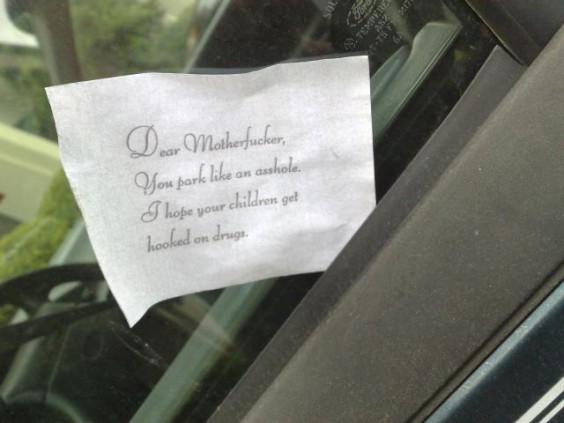 Dear Motherfucker,
You park like an asshole.
I hope your children get
hooked on drugs.
Ford